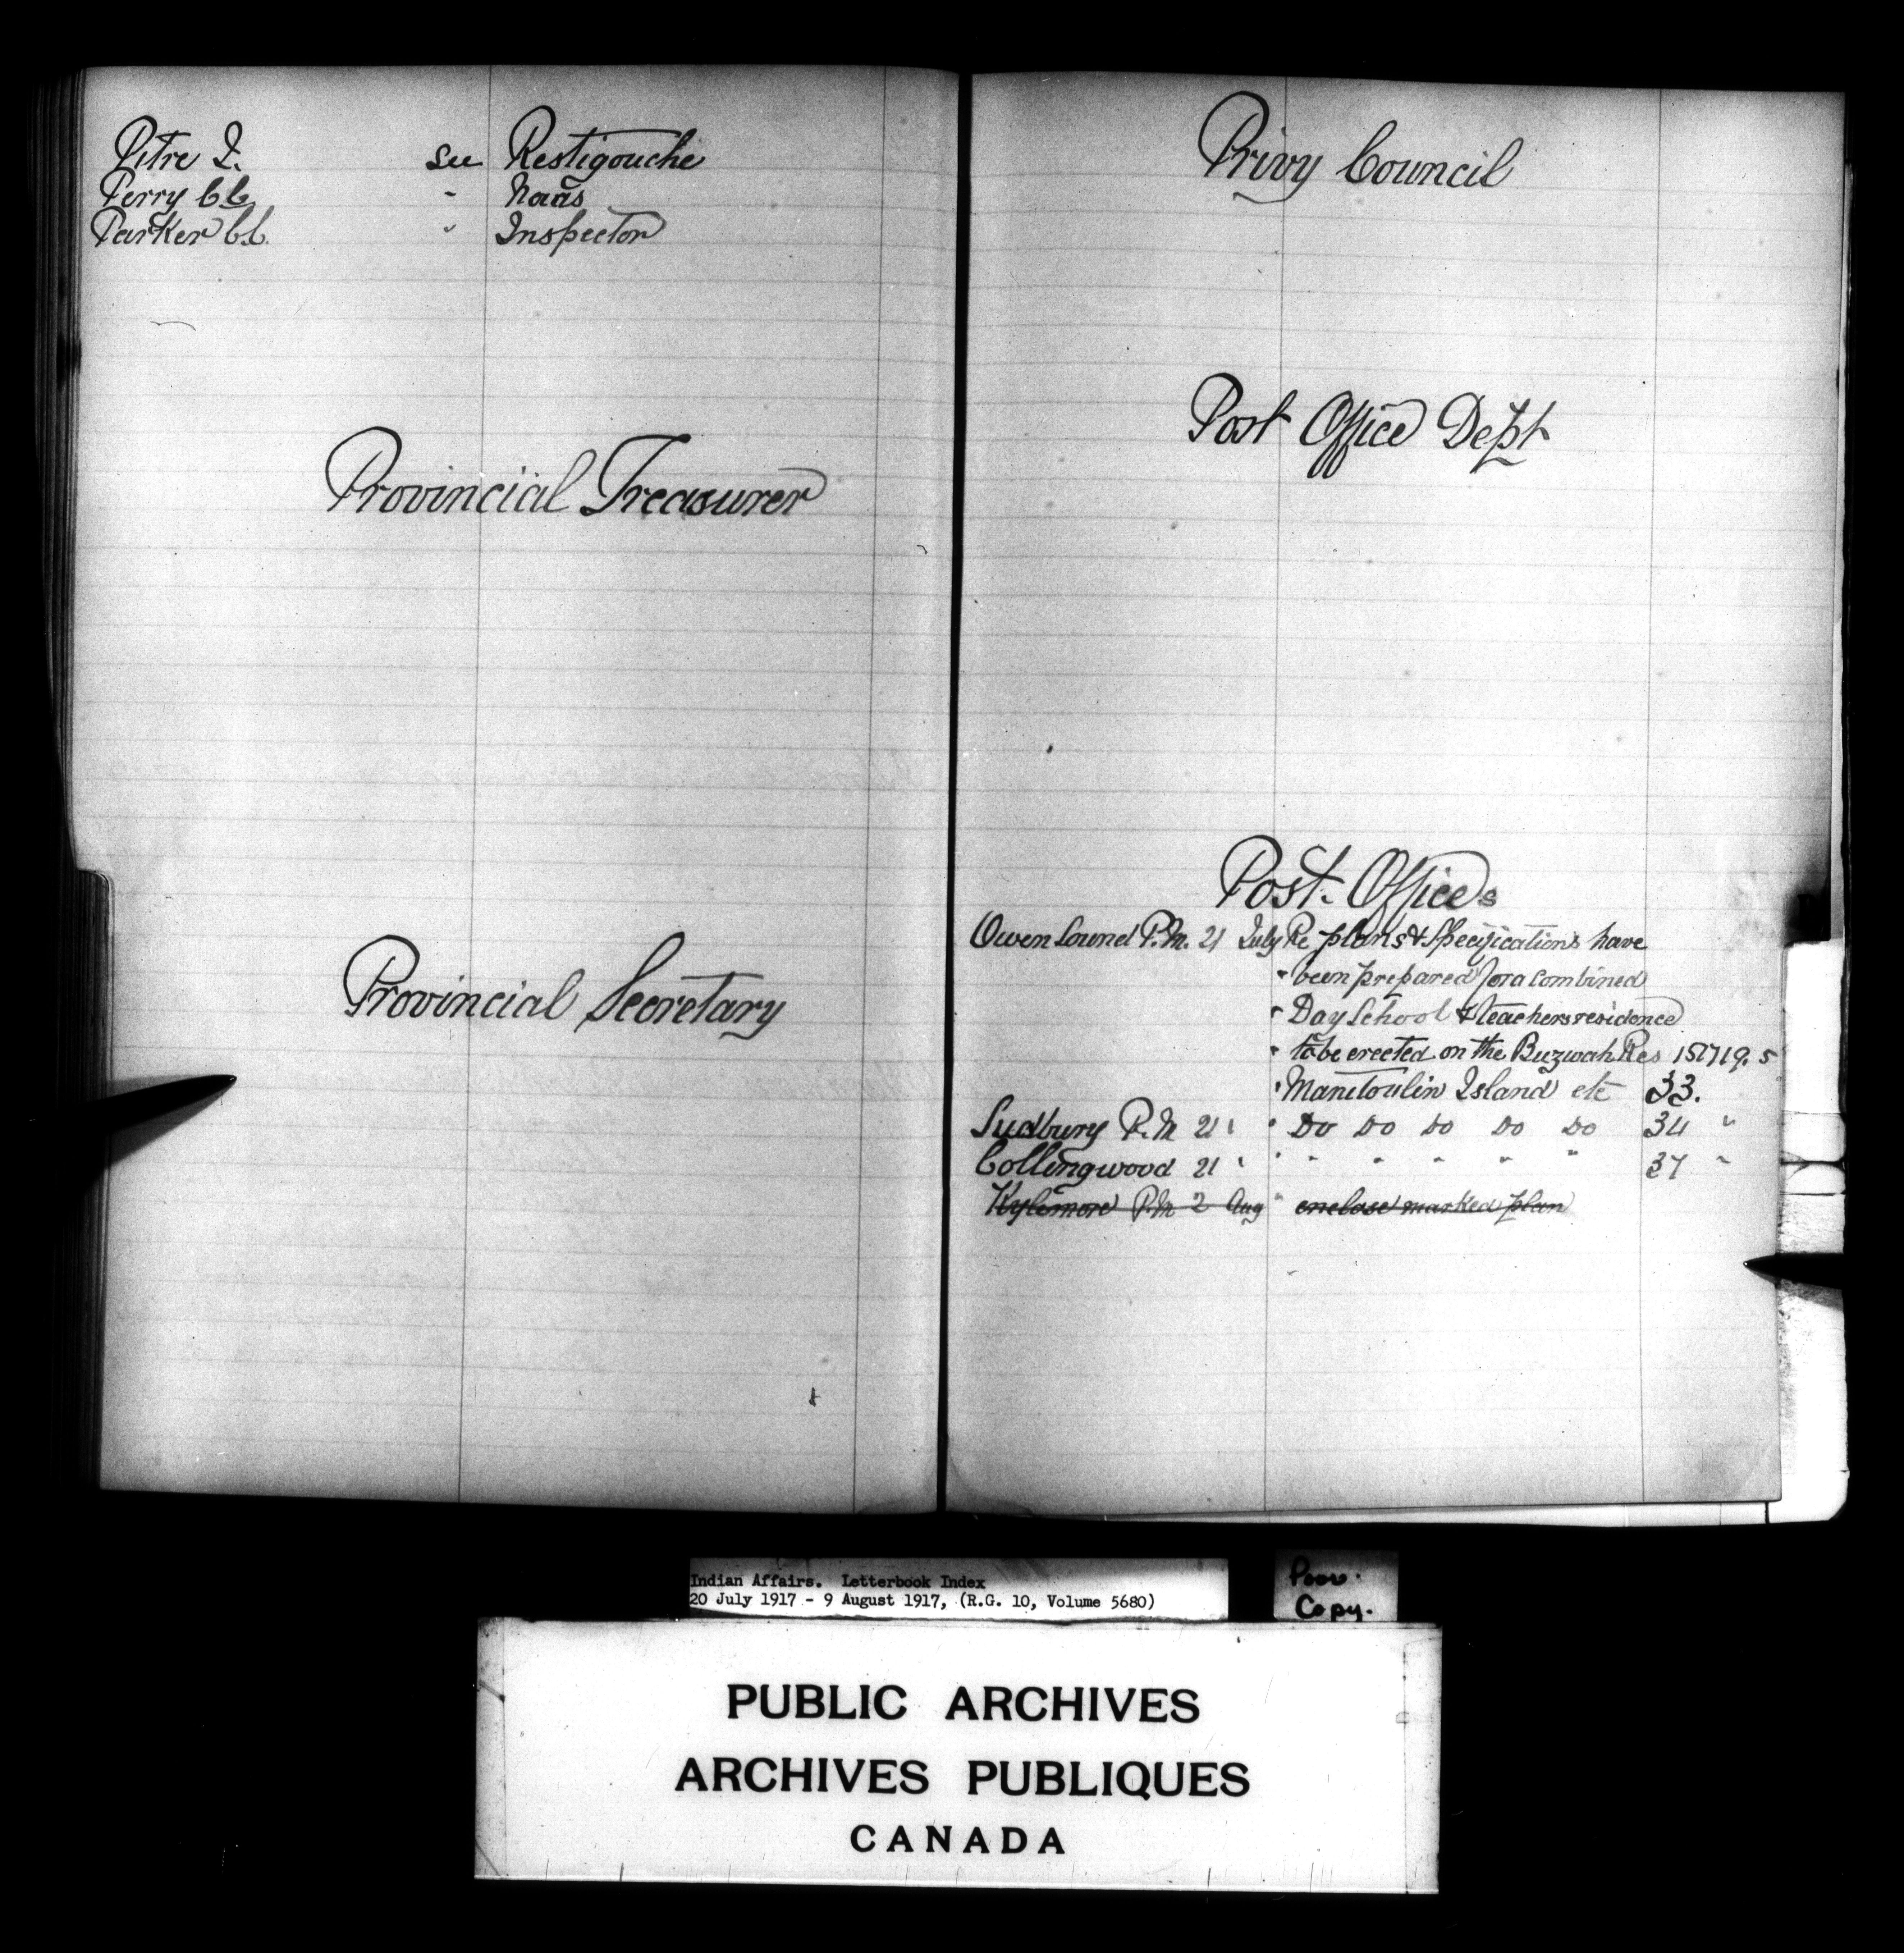 Pitre I. see Restigouche
Perry C.C. " Naas
Parker C.C. " Inspector
Provincial Treasurer
Provincial Secretary
Privy Council
Post Office Dept
Post. Offices
Owen Sound P.M. 21 July Re plans & Specifications have
" been prepared for a combined
" Day School & teachers residence
" to be erected on the Buzwah Res 151719.5
" Manitoulin Island etc 33.
Sudbury P.M 21 " " Do Do Do Do Do 34 "
Collingwood 21 " " " " " " " 37 "
Kylemore P.M 2 Aug " enclose marked plan
Indian Affairs. Letterbook Index
20 July 1917 - 9 August 1917, (R.G. 10, Volume 5680)
Poor.
Copy.
PUBLIC ARCHIVES
ARCHIVES PUBLIQUES
CANADA